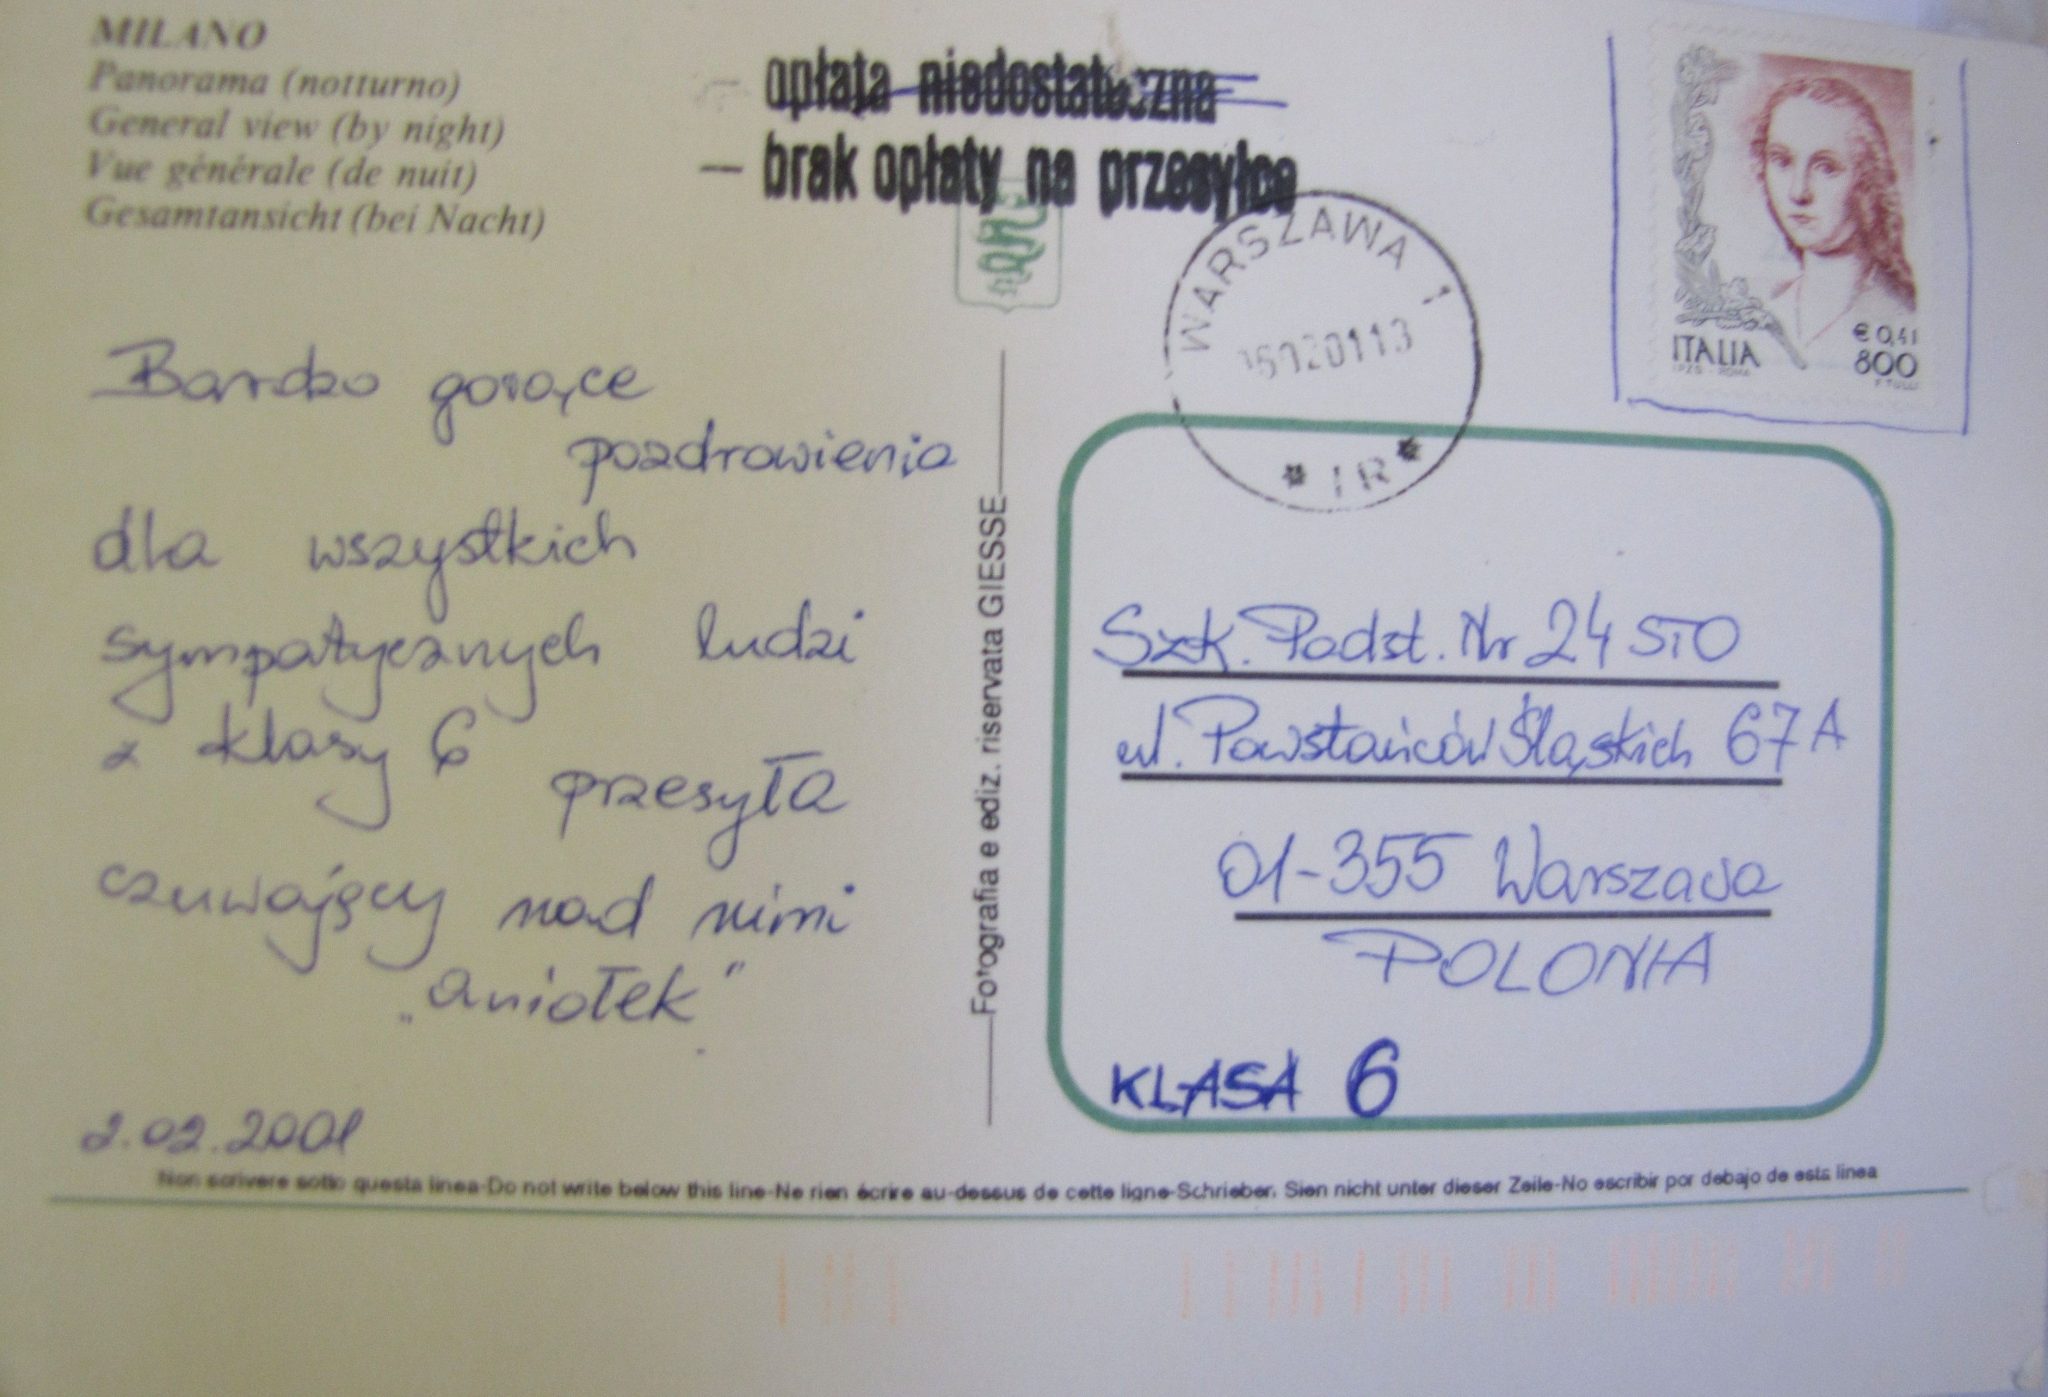 MILANO
Panorama (notturno)
General view (by night)
Vue générale (de nuit)
Gesamtansicht (bei Nacht)
— opłata niedostateczna
— brak opłaty na przesyłce
WARSZAWA 1
* 1R *
ITALIA
€ 0,41
800
I.P.Z.S. - ROMA
F. TULLI
Bardzo gorące
pozdrowienia
dla wszystkich
sympatycznych ludzi
z klasy 6
przesyła
czuwający nad nimi
„aniołek"
2.02.2001
Fotografia e ediz. riservata GIESSE
Szk. Podst. Nr 24 STO
ul. Powstańców Śląskich 67A
01-355 Warszawa
POLONIA
KLASA 6
Non scrivere sotto questa linea-Do not write below this line-Ne rien écrire au-dessus de cette ligne-Schrieber. Sien nicht unter dieser Zeile-No escribir por debajo de esta linea